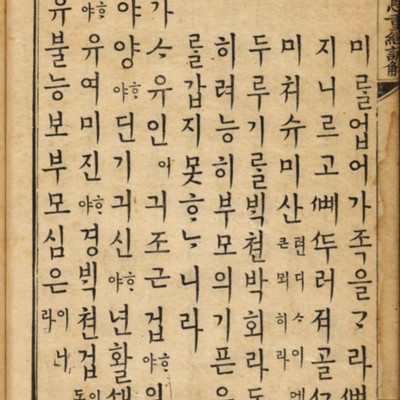 恩重經諺解
미를업어가족을ᄀᆞ라ᄲᅧ
지니르고ᄲᅧᄯᅮ러져골
미쳐슈미산텬디ᄉᆞ이예큰뫼히라
두루기를ᄇᆡᆨ쳔박회라도
히려능히부모의기픈은
를갑지못ᄒᆞᄂᆞ니라
가ᄉᆞ유인이긔조근겁ᄒᆞ야의
야양ᄒᆞ야딘기긔신ᄒᆞ야년활
ᄒᆞ야유여미진ᄒᆞ야경ᄇᆡᆨ쳔겁
유불능보부모심은이니라